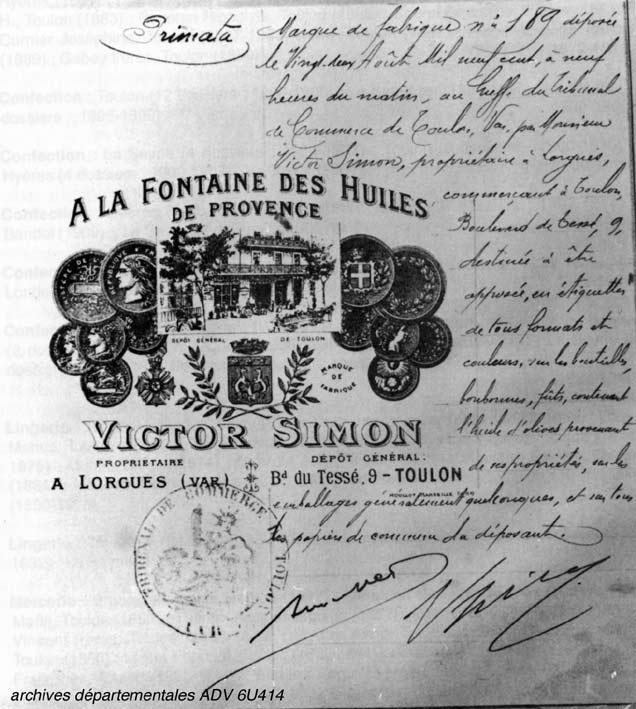 Primata
Marque de fabrique n° 189 déposée
le Vingt-deux Août Mil neuf cent, à neuf
heures du matin, au Greffe du Tribunal
de Commerce de Toulon, Var, par Monsieur
Victor Simon, propriétaire à Lorgues,
commerçant à Toulon,
Boulevard de Tessé, 9,
destinée à être
apposée, en étiquettes
de tous formats et
couleurs, sur les bouteilles,
bonbonnes, fûts, contenant
l'huile d'olives provenant
de ses propriétés, sur les
emballages généralement quelconques, et sur tous
les papiers de commerce du déposant.
A LA FONTAINE DES HUILES
DE PROVENCE
DEPÔT GÉNÉRAL DE TOULON
MARQUE
DE
FABRIQUE
VICTOR SIMON
PROPRIÉTAIRE
A LORGUES (VAR)
DÉPÔT GÉNÉRAL:
Bd du Tessé, 9 - TOULON
TRIBUNAL DE COMMERCE
TOULON
VAR
archives départementales ADV 6U414